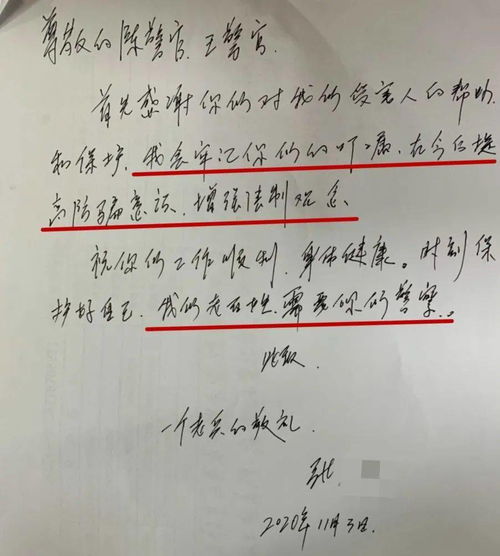 尊敬的陈警官、王警官
首先感谢你们对我们受害人的帮助
和保护。我会牢记你们的叮嘱，在今后提
高防骗意识，增强法制观念。
祝你们工作顺利，身体健康。时刻保
护好自己，我们老百姓需要你们的警察。
此致.
一个老兵的敬礼.
2020年11月3日.